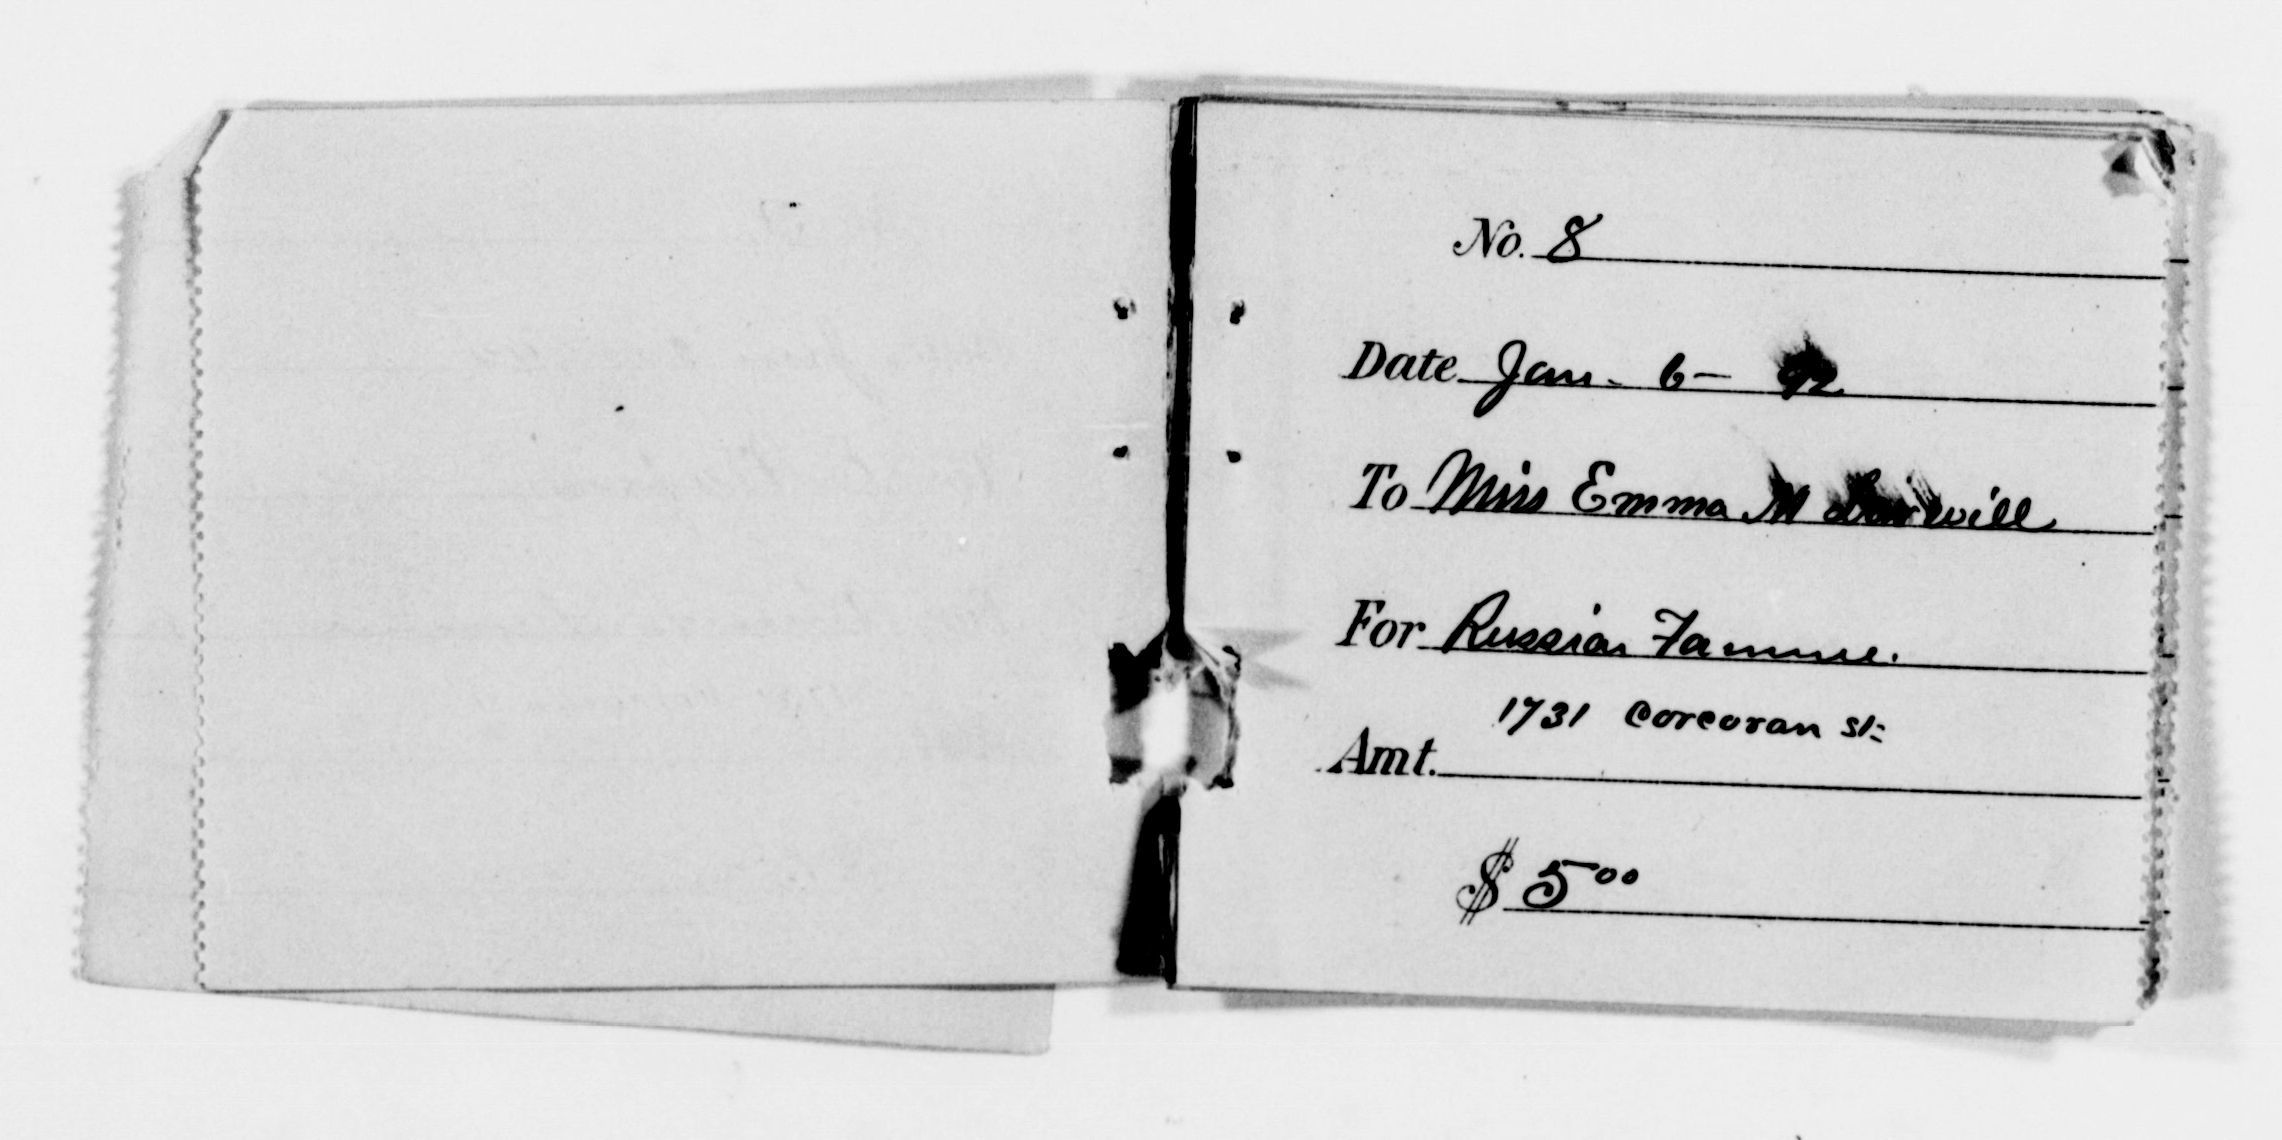 No. 8
Date Jan. 6 - 92
To Miss Emma M
For Russian Famine.
1731 Corcoran St.
Amt.
$ 5 00